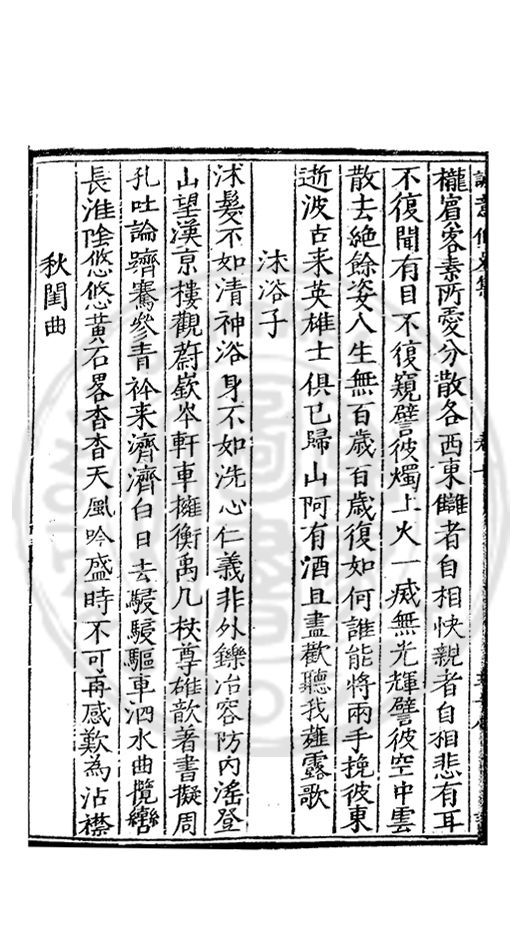 櫳賓客素所愛分散各西東讎者自相快親者自相悲有耳
不復聞有目不復窺譬彼燭上火一滅無光輝譬彼空中雲
散去絶餘姿人生無百歲百歲復如何誰能將兩手挽彼東
逝波古来英雄士俱已歸山阿有酒且盡歡聽我薤露歌
沐浴子
沐髮不如清神浴身不如洗心仁義非外鑠冶容防内滛登
山望漢京樓觀蔚嶔岑軒車擁衡禹几杖尊雄歆著書擬周
孔吐論躋騫參青衿来濟濟白日去駸駸驅車泗水曲攬轡
長淮陰悠悠黄石畧杳杳天風吟盛時不可再感歎為沾襟
秋閨曲